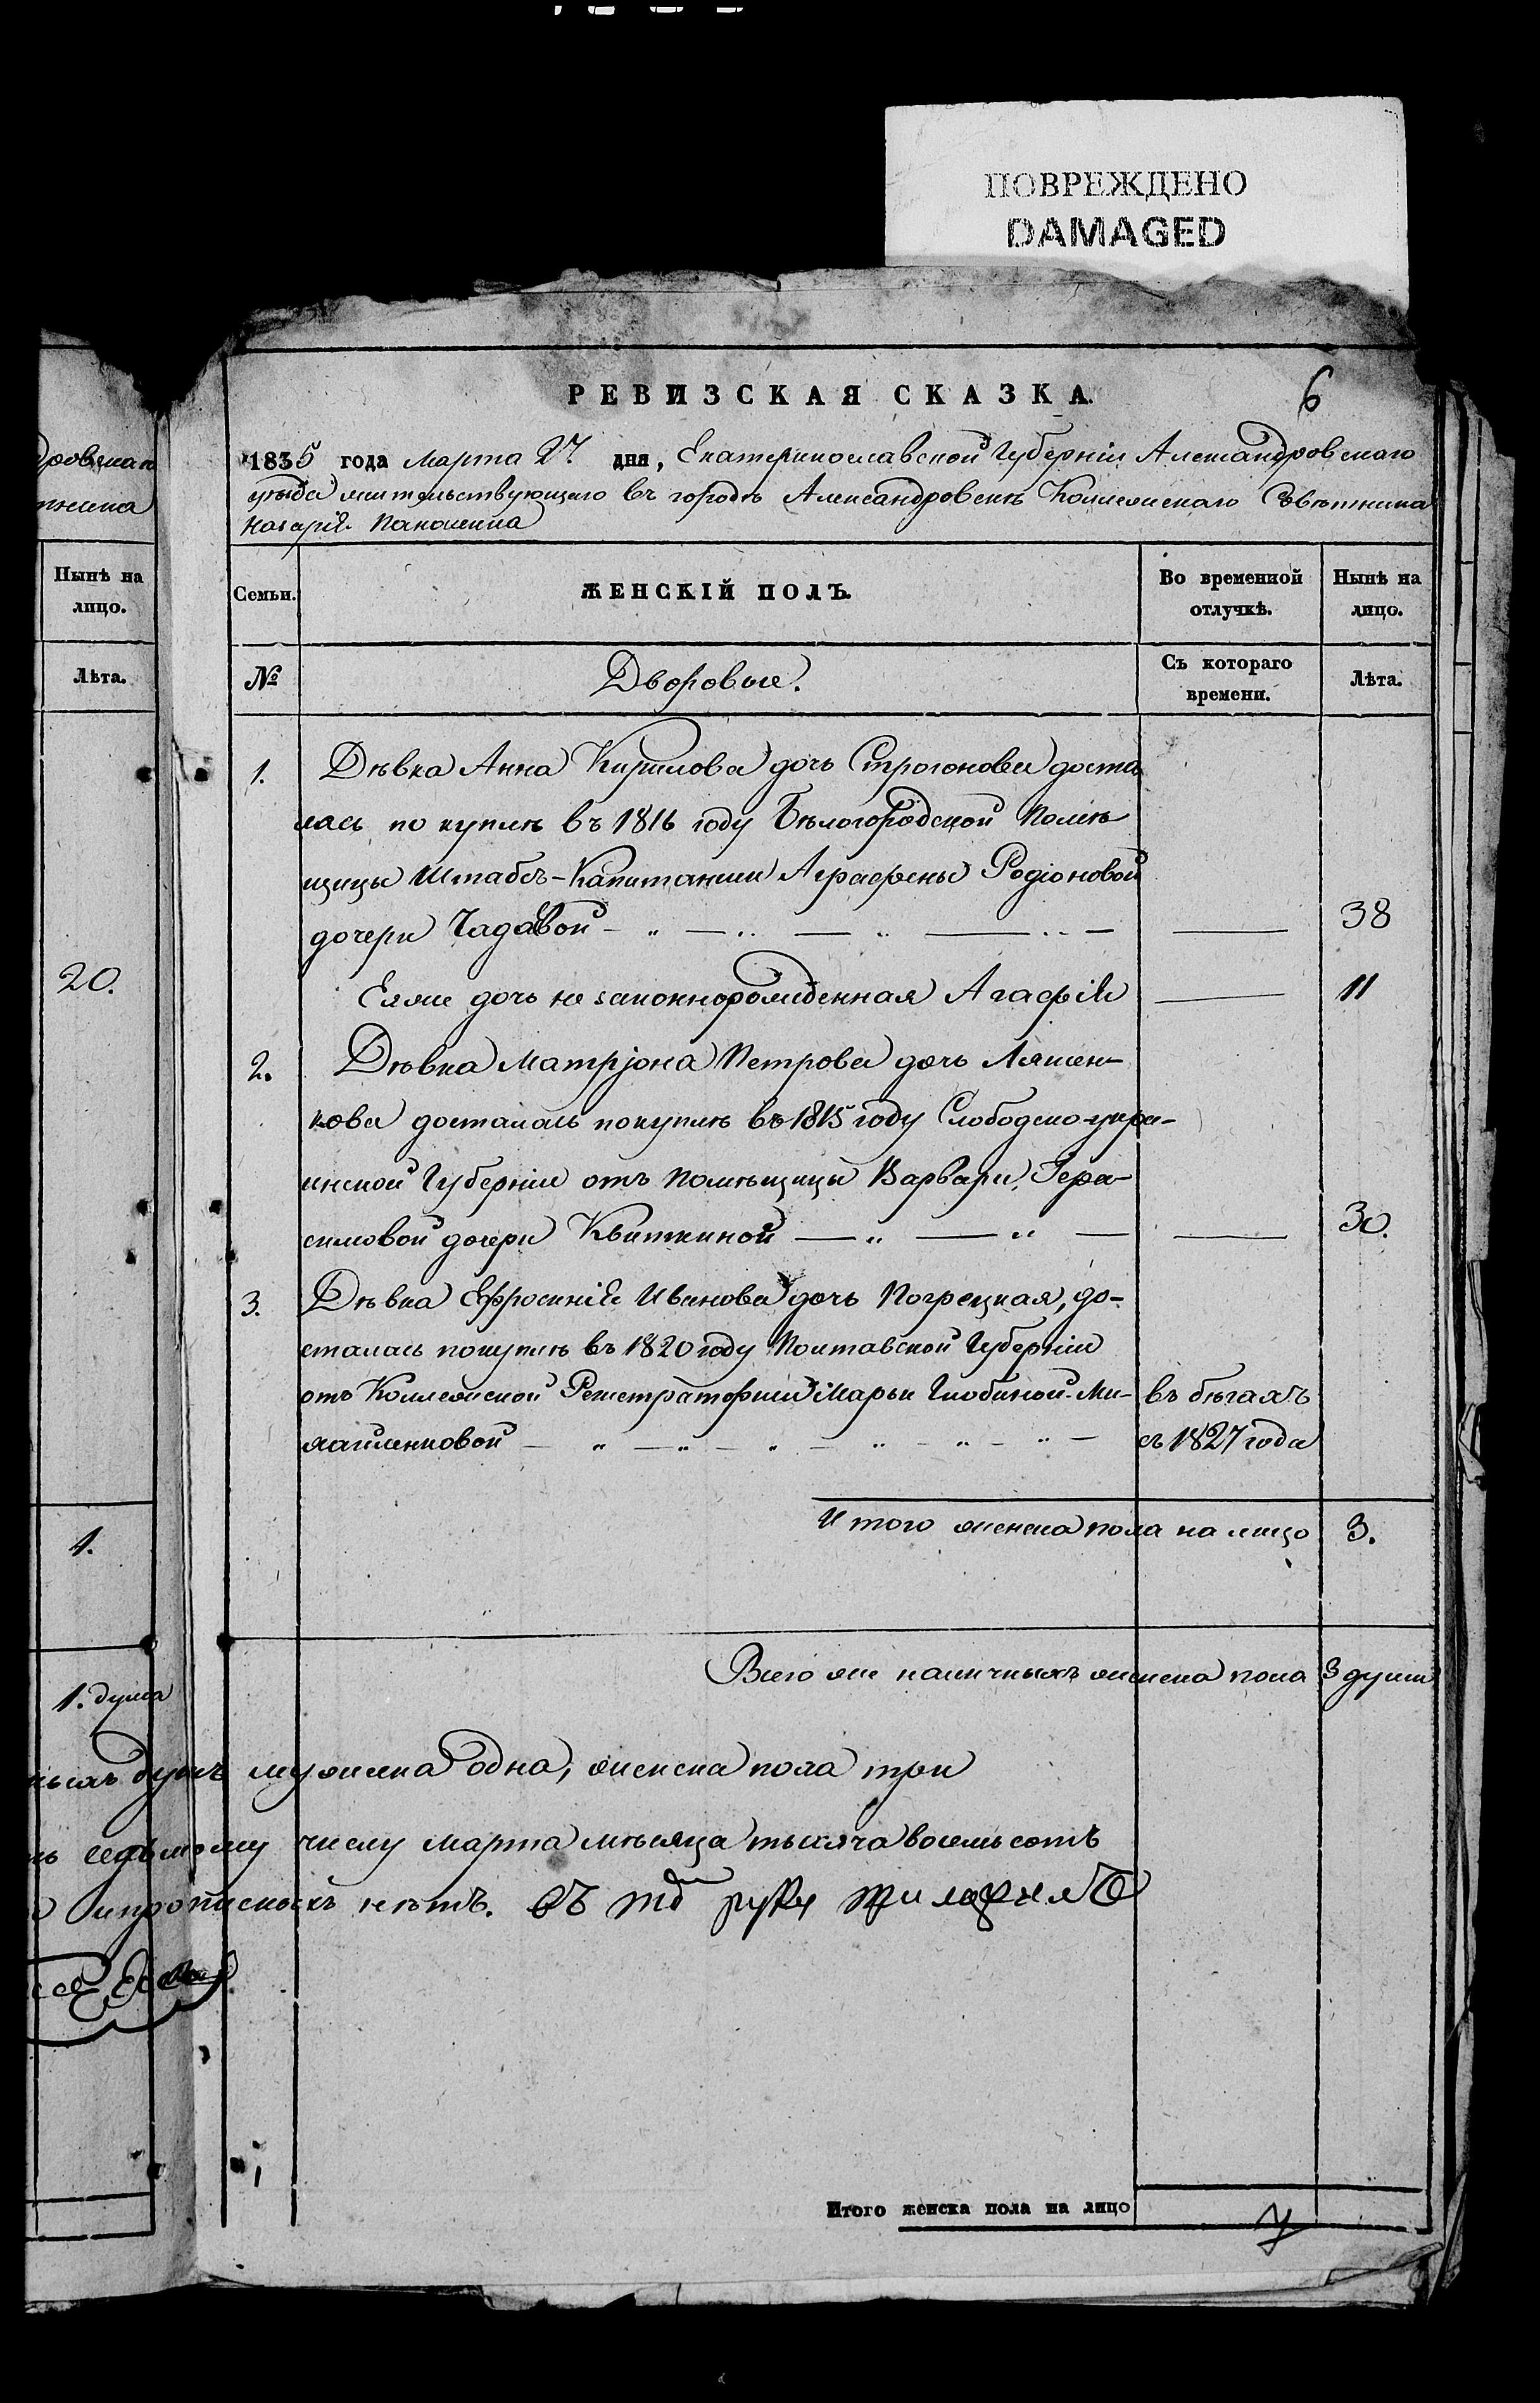 ПОВРЕЖДЕНО
DAMAGED
РЕВИЗСКАЯ СКАЗКА.
6
1835 года Марта 27. дня, Екатеринославской Губерніи Александровскаго
уѣзда жительствующаго въ городѣ Александровскѣ Коллежскаго Совѣтника
Назарія
Нынѣ на
лицо.
Лѣта.
20.
1.
1. душа
Семьи.
ЖЕНСКІЙ ПОЛЪ.
Во временной
отлучкѣ.
Нынѣ на
лицо.
№
Дворовые.
Съ котораго
времени.
Лѣта.
1. Дѣвка Анна Кирилова дочь Строгонова доста
лась по куплѣ въ 1816 году Бѣлогородской Помѣ
щицы Штабсъ-Капитанши Аграфены Родіоновой
дочери 38
Еяже дочь не законнорожденная Агафія 11
2. Дѣвка Матріона Петрова дочь Ляшен-
кова досталась покуплѣ въ 1815 году Слободско-укра-
инской Губерніи отъ Помѣщицы Варвары Гера-
симовой дочери Квиткиной 30.
3. Дѣвка Ефросинія Иванова дочь Погрецкая, до-
сталась покуплѣ въ 1820 году Полтавской Губерніи
отъ Коллежской Регистраторши Марьи Глобиной-Ми- въ бѣгахъ
хайленковой съ 1827 года
Итого женска пола на лицо 3.
Всего же наличныхъ женска пола 3 души
душъ мужеска одна, женска пола три
седьмому числу марта мѣсяца тысяча восемьсотъ
и прописныхъ нѣтъ. въ том руку приложилъ
Итого женска пола на лицо